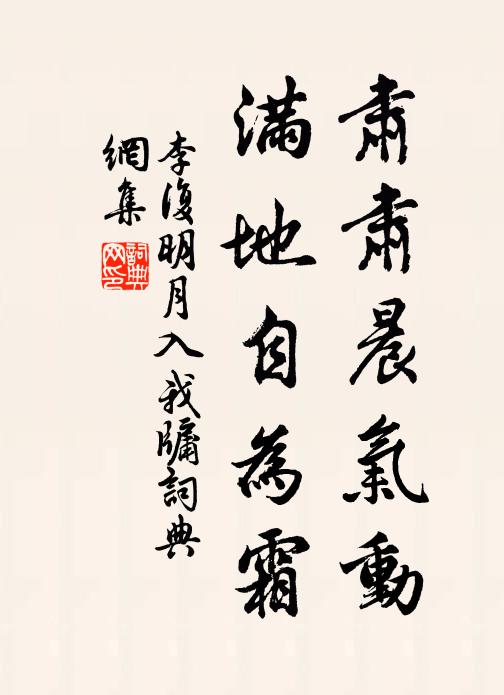 肅肅晨氣動
滿地自為霜
李復明月入我牖詞典
網集
詞典
网印